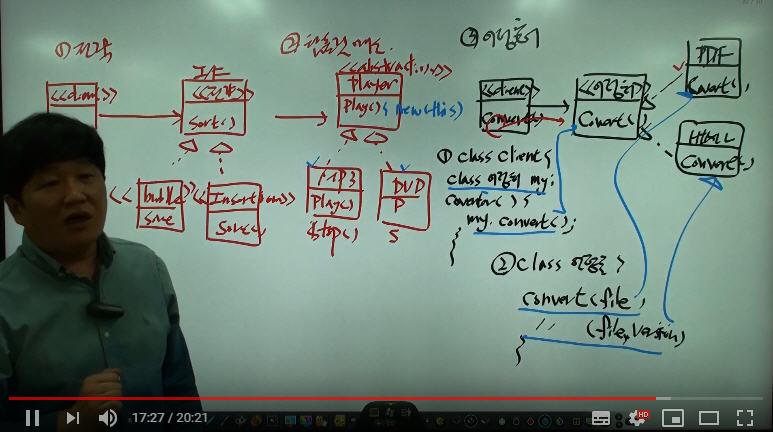 ① 전략
I.F
<<client>>
<<전략>>
sort()
<<bubble>>
<<Insertion>>
②
<<abstract>>
player
play() { new(this)
MP3
play()
stop()
DVD
P
S
③ 어댑터
<<client>>
convert()
<<어댑터>>
Convert()
PDF
Convert()
HTML
Convert()
① class client {
class 어댑터 my;
convert() {
my.convert();
}
② class 어댑터 {
convert(file)
〃 (file, version)
}
17:27 / 20:21
HD